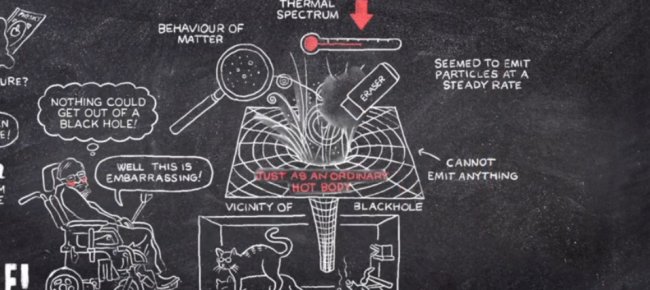 THERMAL
SPECTRUM
BEHAVIOUR OF
MATTER
SEEMED TO EMIT
PARTICLES AT A
STEADY RATE
ERASER
URE?
NOTHING COULD
GET OUT OF A
BLACK HOLE!
WELL THIS IS
EMBARRASSING!
JUST AS AN ORDINARY
HOT BODY
CANNOT
EMIT ANYTHING
VICINITY OF BLACKHOLE
E!